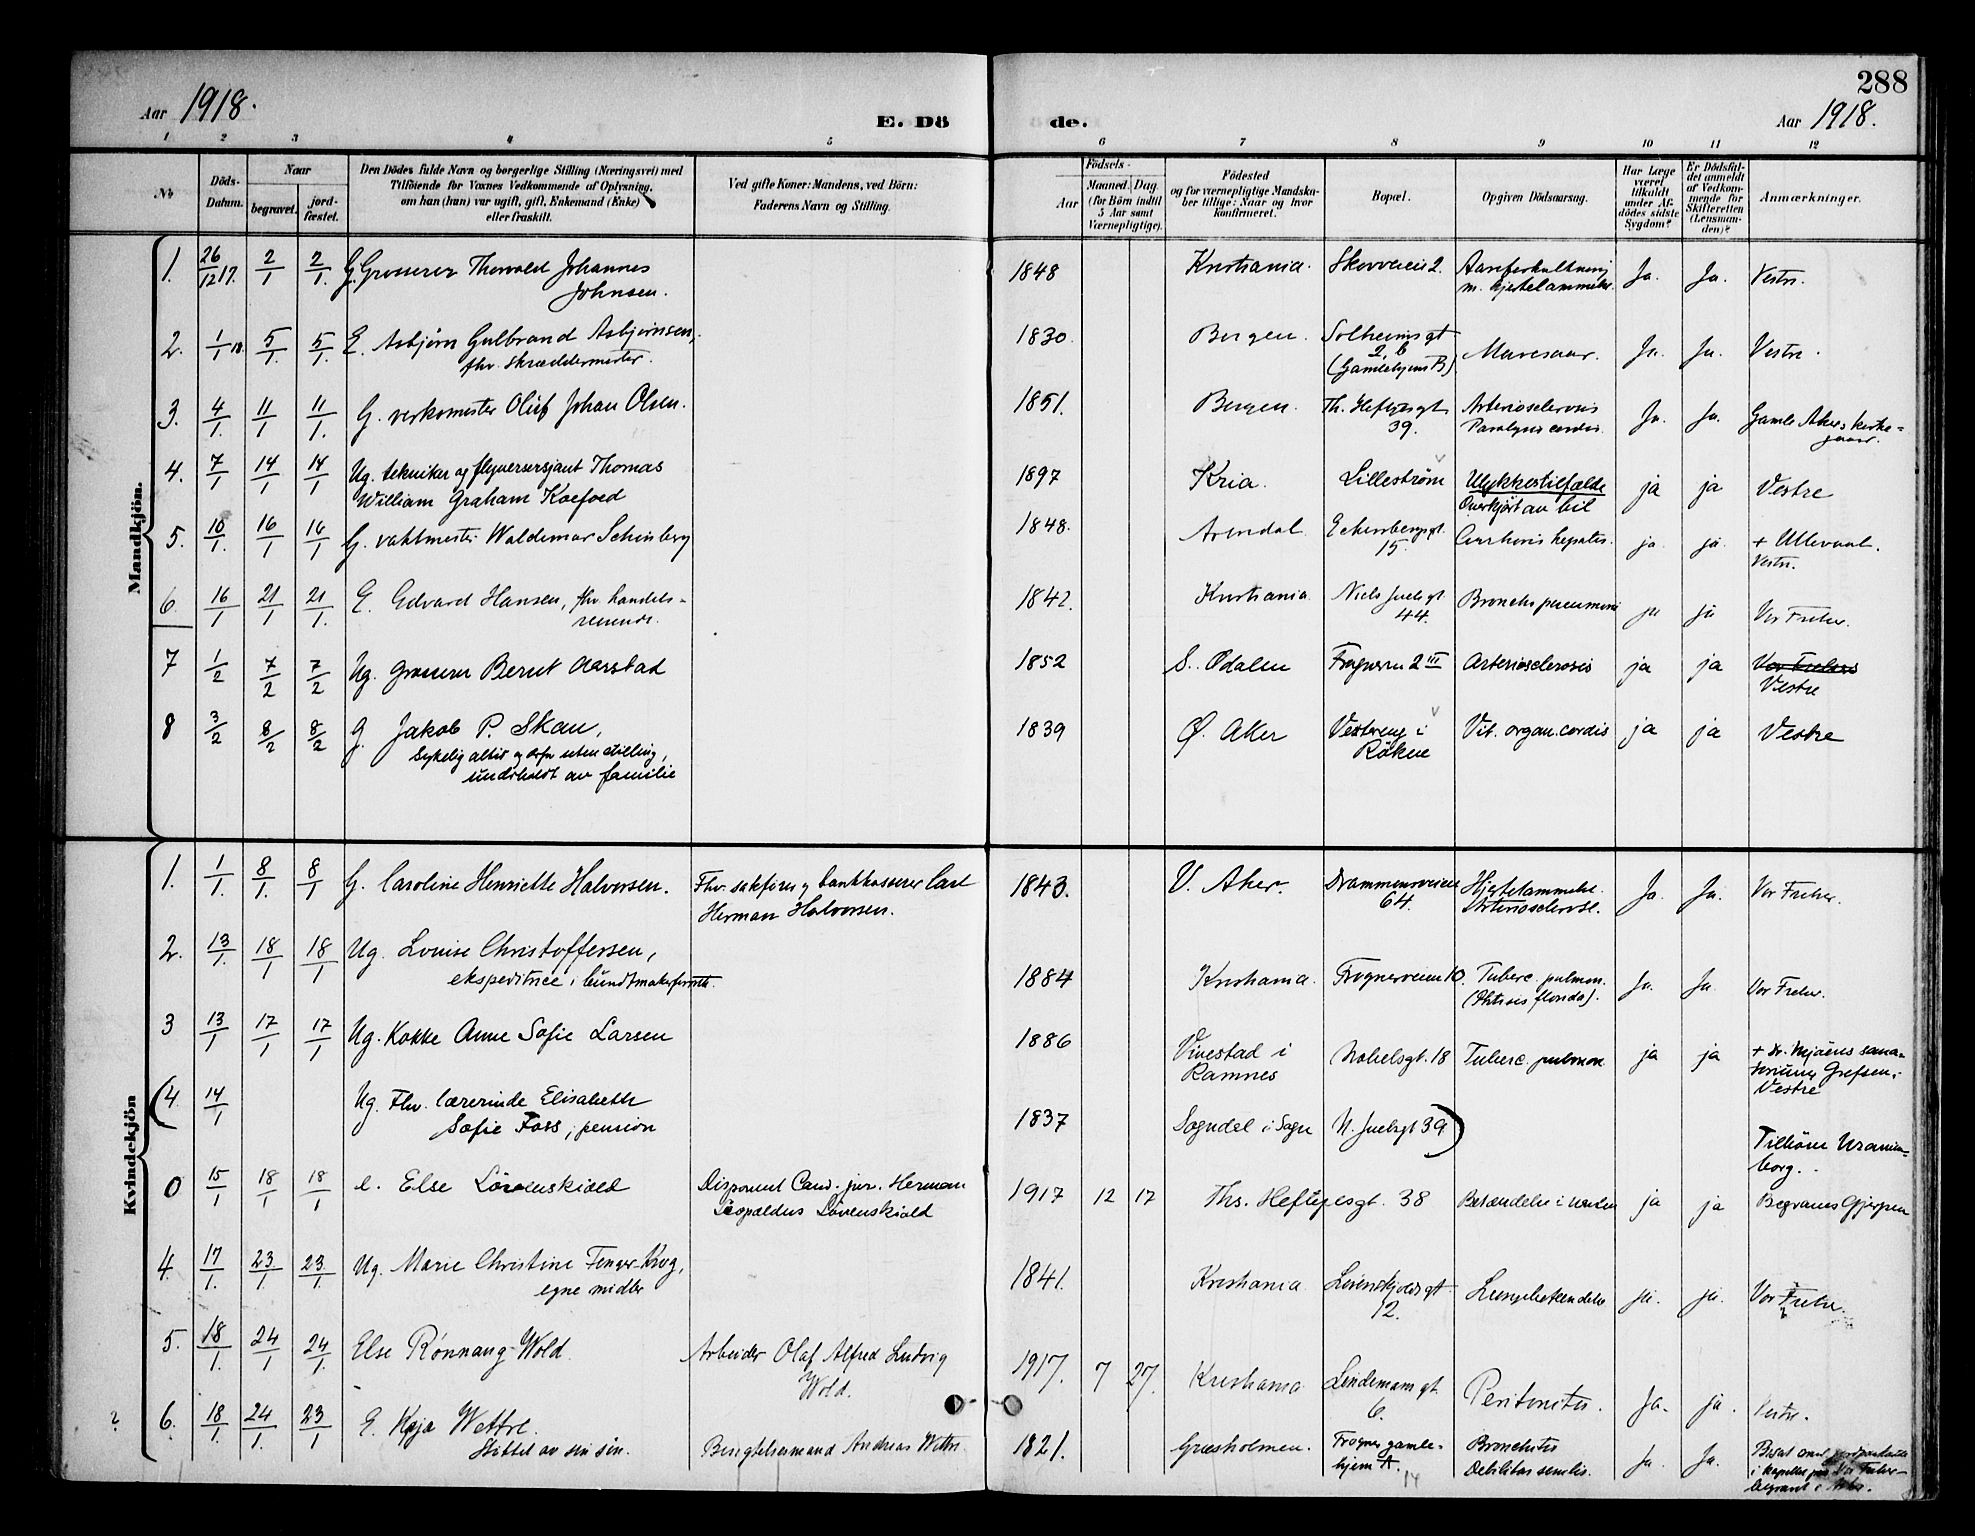 288
Aar 1918.
E. Dö
de.
Aar 1918.
1 2 3 4 5 6 7 8 9 10 11 12
No
Döds-Datum.
Naar
begravet.
jord-fæstet.
Den Dödes fulde Navn og borgerlige Stilling (Næringsvei) med
Tilföiende for Voxnes Vedkommende af Oplysning,
om han (hun) var ugift, gift, Enkemand (Enke)
eller fraskilt.
Ved gifte Koner: Mandens, ved Börn:
Faderens Navn og Stilling.
Födsels-
Aar
Maaned. Dag
(for Börn indtil
5 Aar samt
Værnepligtige).
Födested
og for værnepligtige Mandska-
ber tillige: Naar og hvor
konfirmeret.
Bopæl.
Opgiven Dödsaarsag.
Har Læge
været
tilkaldt
under Af-
dödes sidste
Sygdom?
Er Dödsfal-
det anmeldt
af Vedkom-
mende for
Skifteretten
(Lensman-
den)?
Anmærkninger.
Mandkjön.
1. 26/12 17. 2/1 2/1. G. Grosserer Thorvald Johannes
Johnsen.
1848 Kristiania. Skovveien 2. Aareforkalkning
m. hjertelammelse. Ja. Ja. Vestre.
2. 1/1 18. 5/1. 5/1. E. Asbjørn Gulbrand Asbjørnsen,
fhv. Skræddermester.
1830. Bergen. Solheimsgt
2, b
(Gamlehjem B) Marasmus. Ja. Ja. Vestre.
3. 4/1. 11/1 11/1. G. verksmester Oluf Johan Olsen.
1851. Bergen. Th. Heftyesgt
39. Arteriosclerosis
Paralysis cordis. Ja. Ja. Gamle Akers kirke-
gaard.
4. 7/1. 14/1 14/1 Ug. tekniker og flyversersjant Thomas
William Graham Koefoed
1897 Kria. Lilleström Ulykkestilfælde
Overkjört av bil ja ja Vestre
5. 10/1. 16/1 16/1 G. vaktmester Waldemar Schinberg
1848. Arendal Eckersbergsgt.
15. Cirrhosis hepatis. ja. ja. + Ullevaal.
Vestre.
6. 16/1 21/1 21/1. E. Edvard Hansen, fhv. handels-
reisende.
1842. Kristiania Niels Juelsgt.
44. Broncho pneumoni ja ja Vor Frelser.
7 1/2 7/2 7/2 Ug. grosserer Bernt Aarstad
1852 S. Odalen Frognervn 2 III Arteriosclerosis ja ja Vor Frelsers
Vestre
8 3/2 8/2 8/2 G. Jakob P. Skau,
Sykelig altid og derfor uten stilling,
underholdt av familie
1839 Ø. Aker Vestereng i
Röken Vit. organ. cordis ja ja Vestre
Kvindekjön
1. 1/1. 8/1. 8/1 G. Caroline Henriette Halvorsen. Fhv. sakförer og bankkasserer Carl
Herman Halvorsen.
1843. V. Aker. Drammensveien
64. Hjertelammelse.
Arteriosclerose. Ja. Ja. Vor Frelser.
2. 13/1. 18/1 18/1 Ug. Louise Christoffersen,
ekspeditrice i bundtmakerforretn.
1884 Kristiania. Frognerveien 10. Tuberc. pulmon.
(Phtisis florida). Ja. Ja. Vor Frelser.
3 13/1 17/1 17/1 Ug. Kokke Anne Sofie Larsen
1886 Vivestad i
Ramnes Nobelsgt. 18 Tuberc. pulmon. ja ja + Dr. Mjøens sana-
torium Grefsen.
Vestre
(4. 14/1 Ug. Fhv. lærerinde Elisabeth
Sofie Foss, pension
1837 Sogndal i Sogn N. Juelsgt 39)
Tilhörer Uranien-
borg.
0 15/1 18/1 18/1 e. Else Lövenskiold Disponent Cand. jur. Herman
Leopoldus Lövenskiold
1917 12 17 Ths. Heftyesgt. 38 Betændelse i lungen ja ja Begraves Gjerpen
4. 17/1. 23/1 23/1. Ug. Marie Christine Fenger-Krog,
egne midler
1841. Kristiania Lövenskjoldsgt
12. Lungebetændelse ja. ja. Vor Frelser.
5. 18/1. 24/1 24/1. Else Rönnaug Wold. Arbeider Olaf Alfred Ludvig
Wold.
1917. 7 27. Kristiania Lindemansgt
6. Peritonitis. Ja. ja. Vestre.
? 6. 18/1. 24/1. 23/1 E. Kaja Wettre.
Støttet av sin sön. Andreas Wettre
1821. Græsholmen. Frogner gamle-
hjem A. 14 Bronchitis
Debilitas senilis. Ja. Ja.
i kapellet paa Vor Frelser-